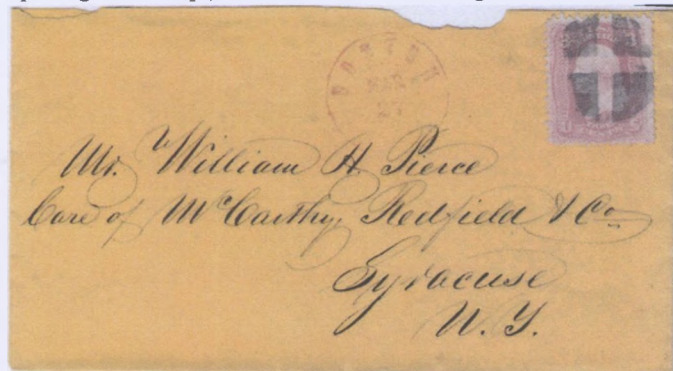 BOSTON
MAR
27
Mr. William H. Pierce
Care of McCarthy, Redfield & Co
Syracuse
N. Y.